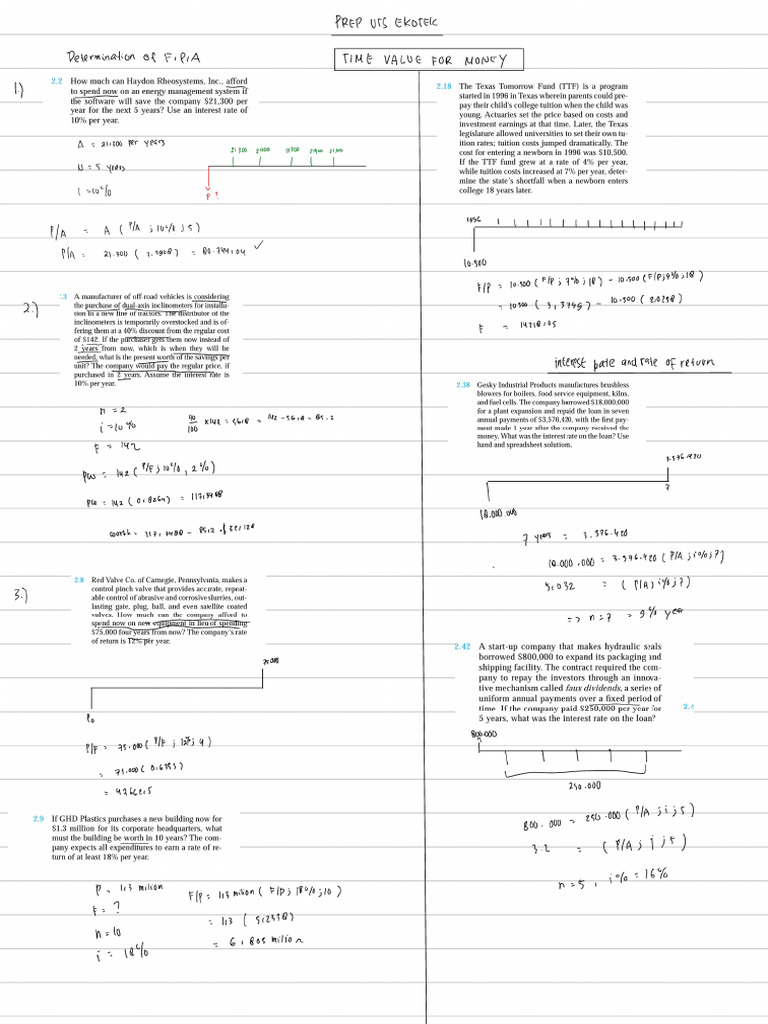 PREP UTS EKOTEK
Determination of F.P.A
1.)
2.2 How much can Haydon Rheosystems, Inc., afford
to spend now on an energy management system if
the software will save the company $21,300 per
year for the next 5 years? Use an interest rate of
10% per year.
A = 21.300 per years
N = 5 years
i = 10%
21.300
P ?
P/A = A ( P/A ; 10% ; 5 )
P/A = 21.300 ( 3.7908 ) = 80.744,04 ✓
2.)
.3 A manufacturer of off-road vehicles is considering
the purchase of dual-axis inclinometers for installa-
tion in a new line of tractors. The distributor of the
inclinometers is temporarily overstocked and is of-
fering them at a 40% discount from the regular cost
of $142. If the purchaser gets them now instead of
2 years from now, which is when they will be
needed, what is the present worth of the savings per
unit? The company would pay the regular price, if
purchased in 2 years. Assume the interest rate is
10% per year.
n = 2
i = 10%
F = 142
40/100 x 142 = 56.8 = 142 - 56.8 = 85.2
PW = 142 ( P/F ; 10% , 2% )
PW = 142 ( 0.8264 ) = 117,3488
3.)
2.8 Red Valve Co. of Carnegie, Pennsylvania, makes a
control pinch valve that provides accurate, repeat-
able control of abrasive and corrosive slurries, out-
lasting gate, plug, ball, and even satellite coated
valves. How much can the company afford to
spend now on new equipment in lieu of spending
$75,000 four years from now? The company's rate
of return is 12% per year.
75.000
P0
P/F = 75.000 ( P/F ; 12% ; 4 )
= 75.000 ( 0.6355 )
= 47662.5
2.9 If GHD Plastics purchases a new building now for
$1.3 million for its corporate headquarters, what
must the building be worth in 10 years? The com-
pany expects all expenditures to earn a rate of re-
turn of at least 18% per year.
P = 1.3 milion
F = ?
n = 10
i = 18%
F/P = 1.3 milion ( F/P ; 18% ; 10 )
= 1.3 ( 5,2338 )
= 6,805 milion
TIME VALUE FOR MONEY
2.18 The Texas Tomorrow Fund (TTF) is a program
started in 1996 in Texas wherein parents could pre-
pay their child's college tuition when the child was
young. Actuaries set the price based on costs and
investment earnings at that time. Later, the Texas
legislature allowed universities to set their own tu-
ition rates; tuition costs jumped dramatically. The
cost for entering a newborn in 1996 was $10,500.
If the TTF fund grew at a rate of 4% per year,
while tuition costs increased at 7% per year, deter-
mine the state's shortfall when a newborn enters
college 18 years later.
1996
10.500
F/P = 10.500 ( F/P ; 7% ; 18 ) - 10.500 ( F/P ; 4% ; 18 )
= 10.500 ( 3,3799 ) - 10.500 ( 2.0258 )
F = 14218.05
interest rate and rate of return
2.38 Gesky Industrial Products manufactures brushless
blowers for boilers, food service equipment, kilns,
and fuel cells. The company borrowed $18,000,000
for a plant expansion and repaid the loan in seven
annual payments of $3,576,420, with the first pay-
ment made 1 year after the company received the
money. What was the interest rate on the loan? Use
hand and spreadsheet solutions.
3.576.420
7
18.000.000
7 years = 3.576.420
18.000.000 = 3.576.420 ( P/A ; i% ; 7 )
5,032 = ( P/A ; i% ; 7 )
=> n = 7 = 9% year
2.42 A start-up company that makes hydraulic seals
borrowed $800,000 to expand its packaging and
shipping facility. The contract required the com-
pany to repay the investors through an innova-
tive mechanism called faux dividends, a series of
uniform annual payments over a fixed period of
time. If the company paid $250,000 per year for
5 years, what was the interest rate on the loan?
2.4
800.000
250.000
800.000 = 250.000 ( P/A ; i ; 5 )
3.2 = ( P/A ; i ; 5 )
n = 5 , i% = 16%